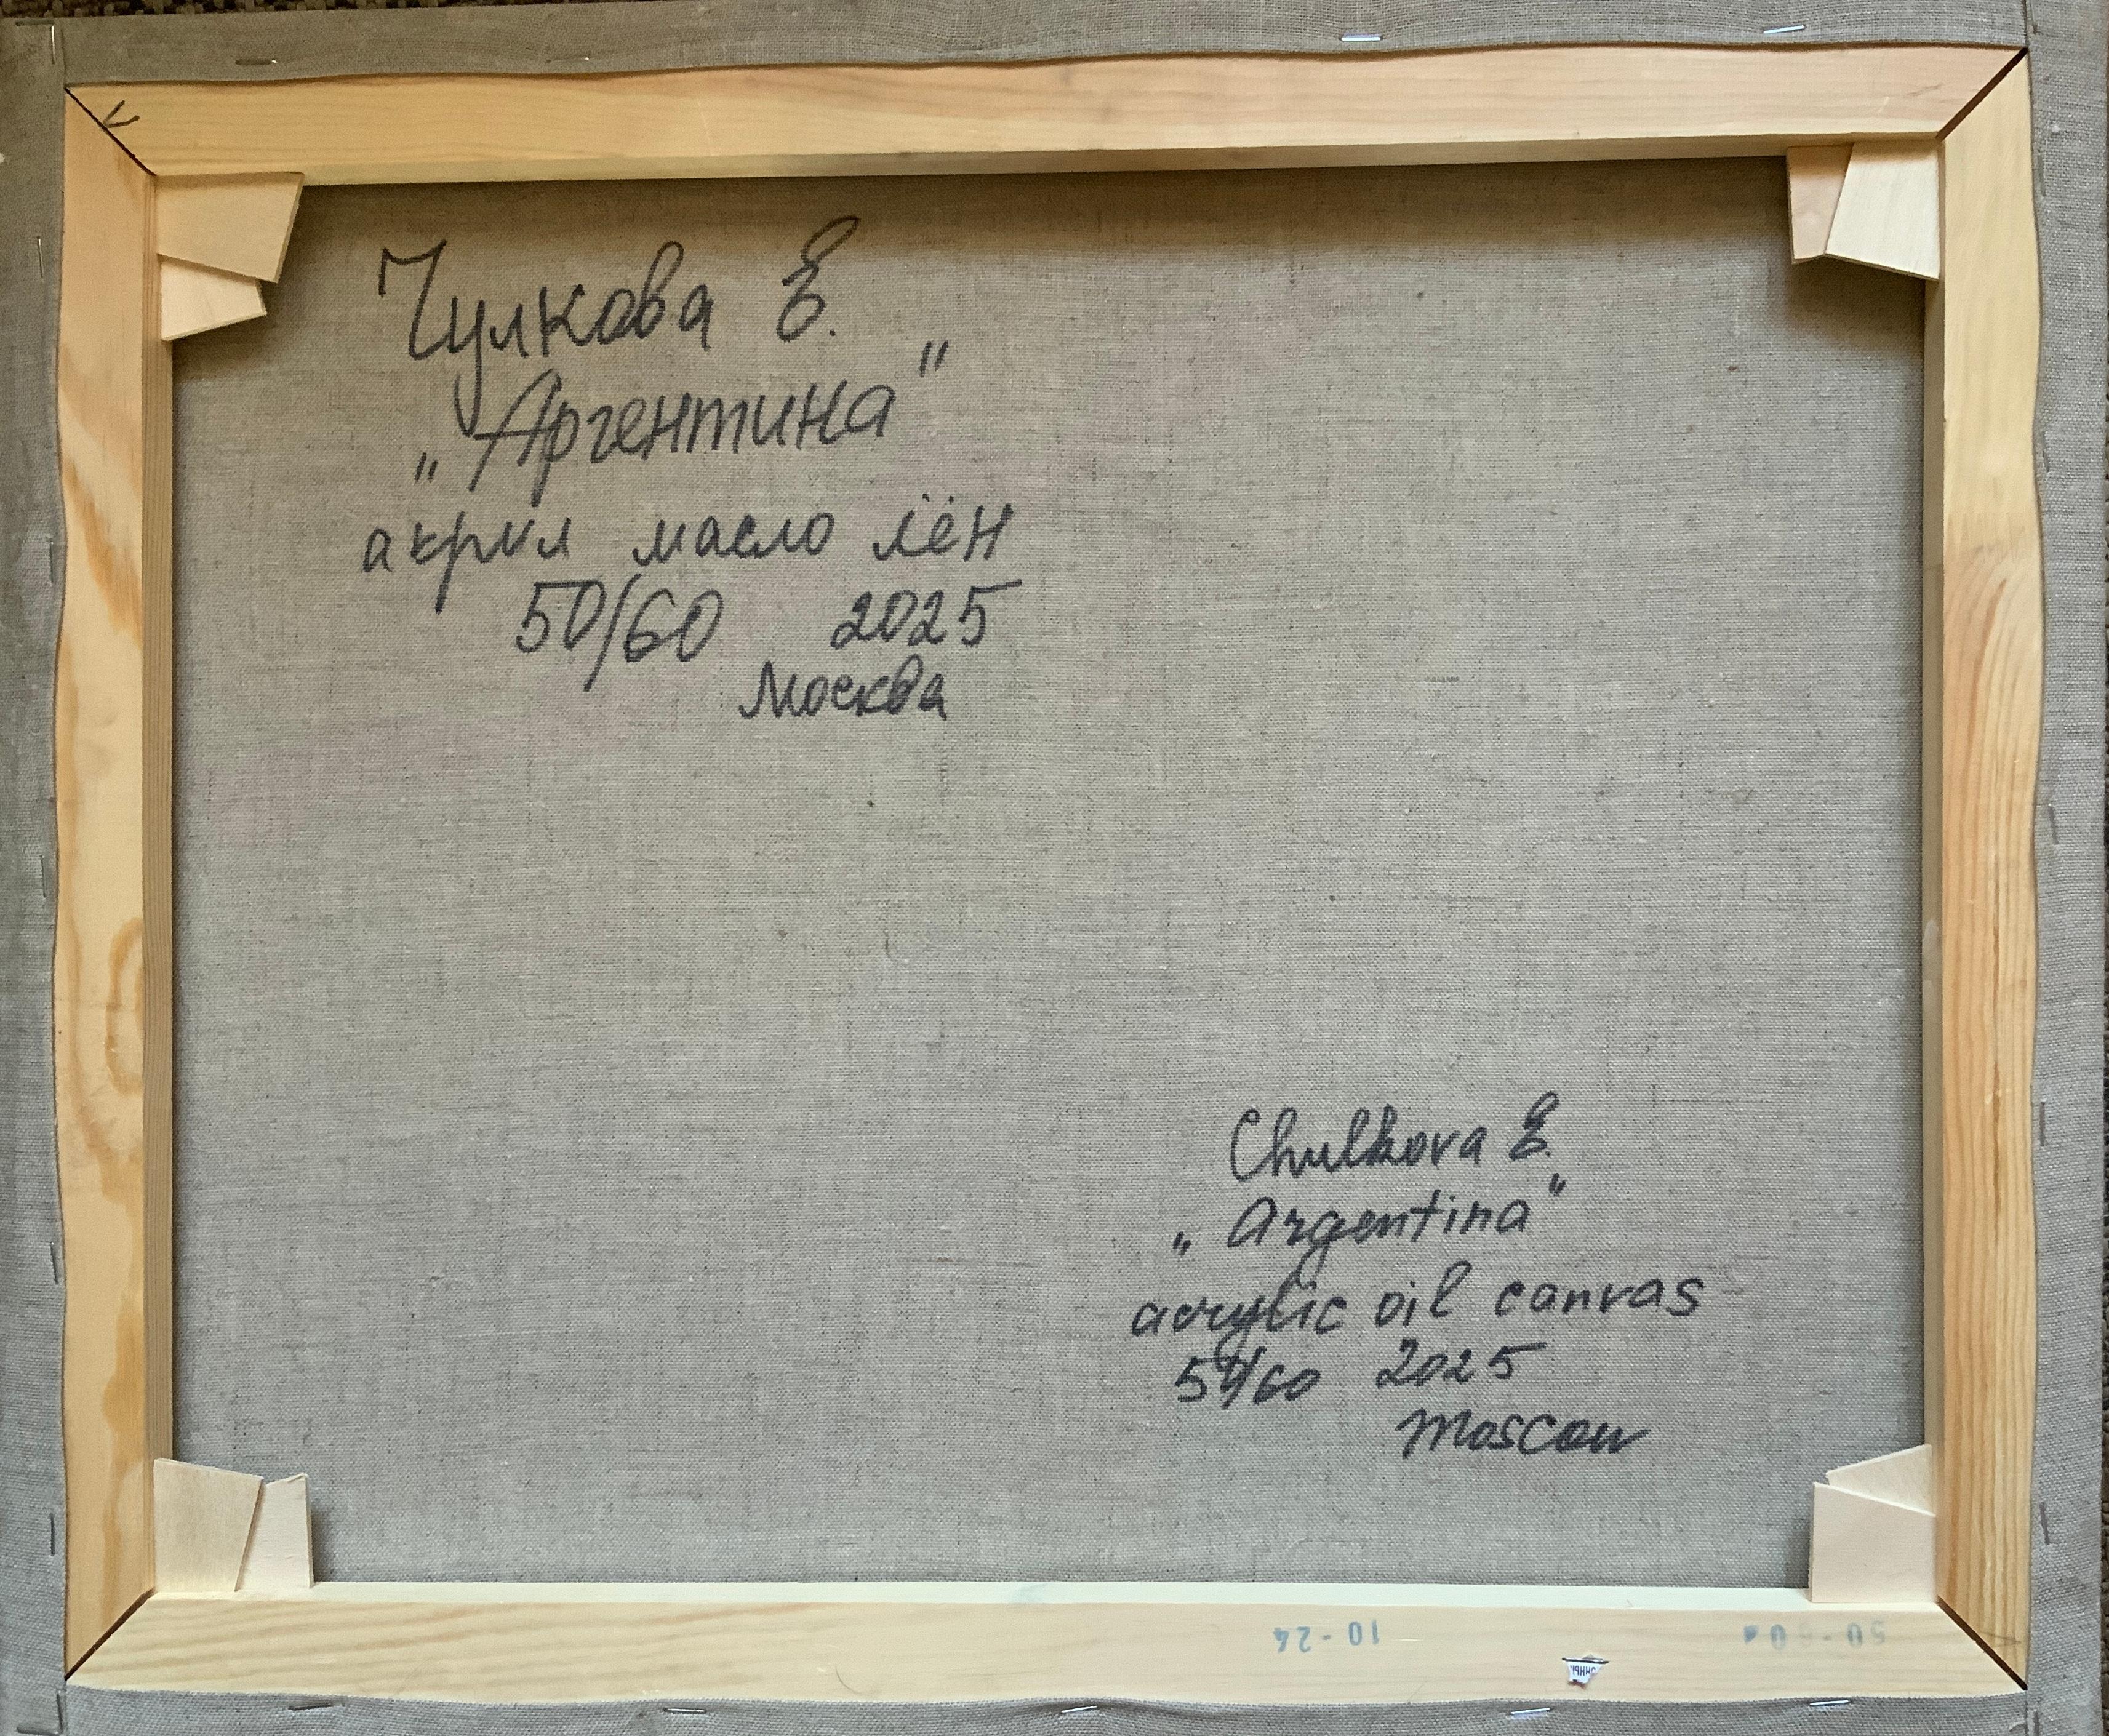 Чулкова Е.
„Аргентина"
акрил масло лён
50/60 2025
Москва
Chulkova E.
„Argentina"
acrylic oil canvas
50/60 2025
Moscow
10-24